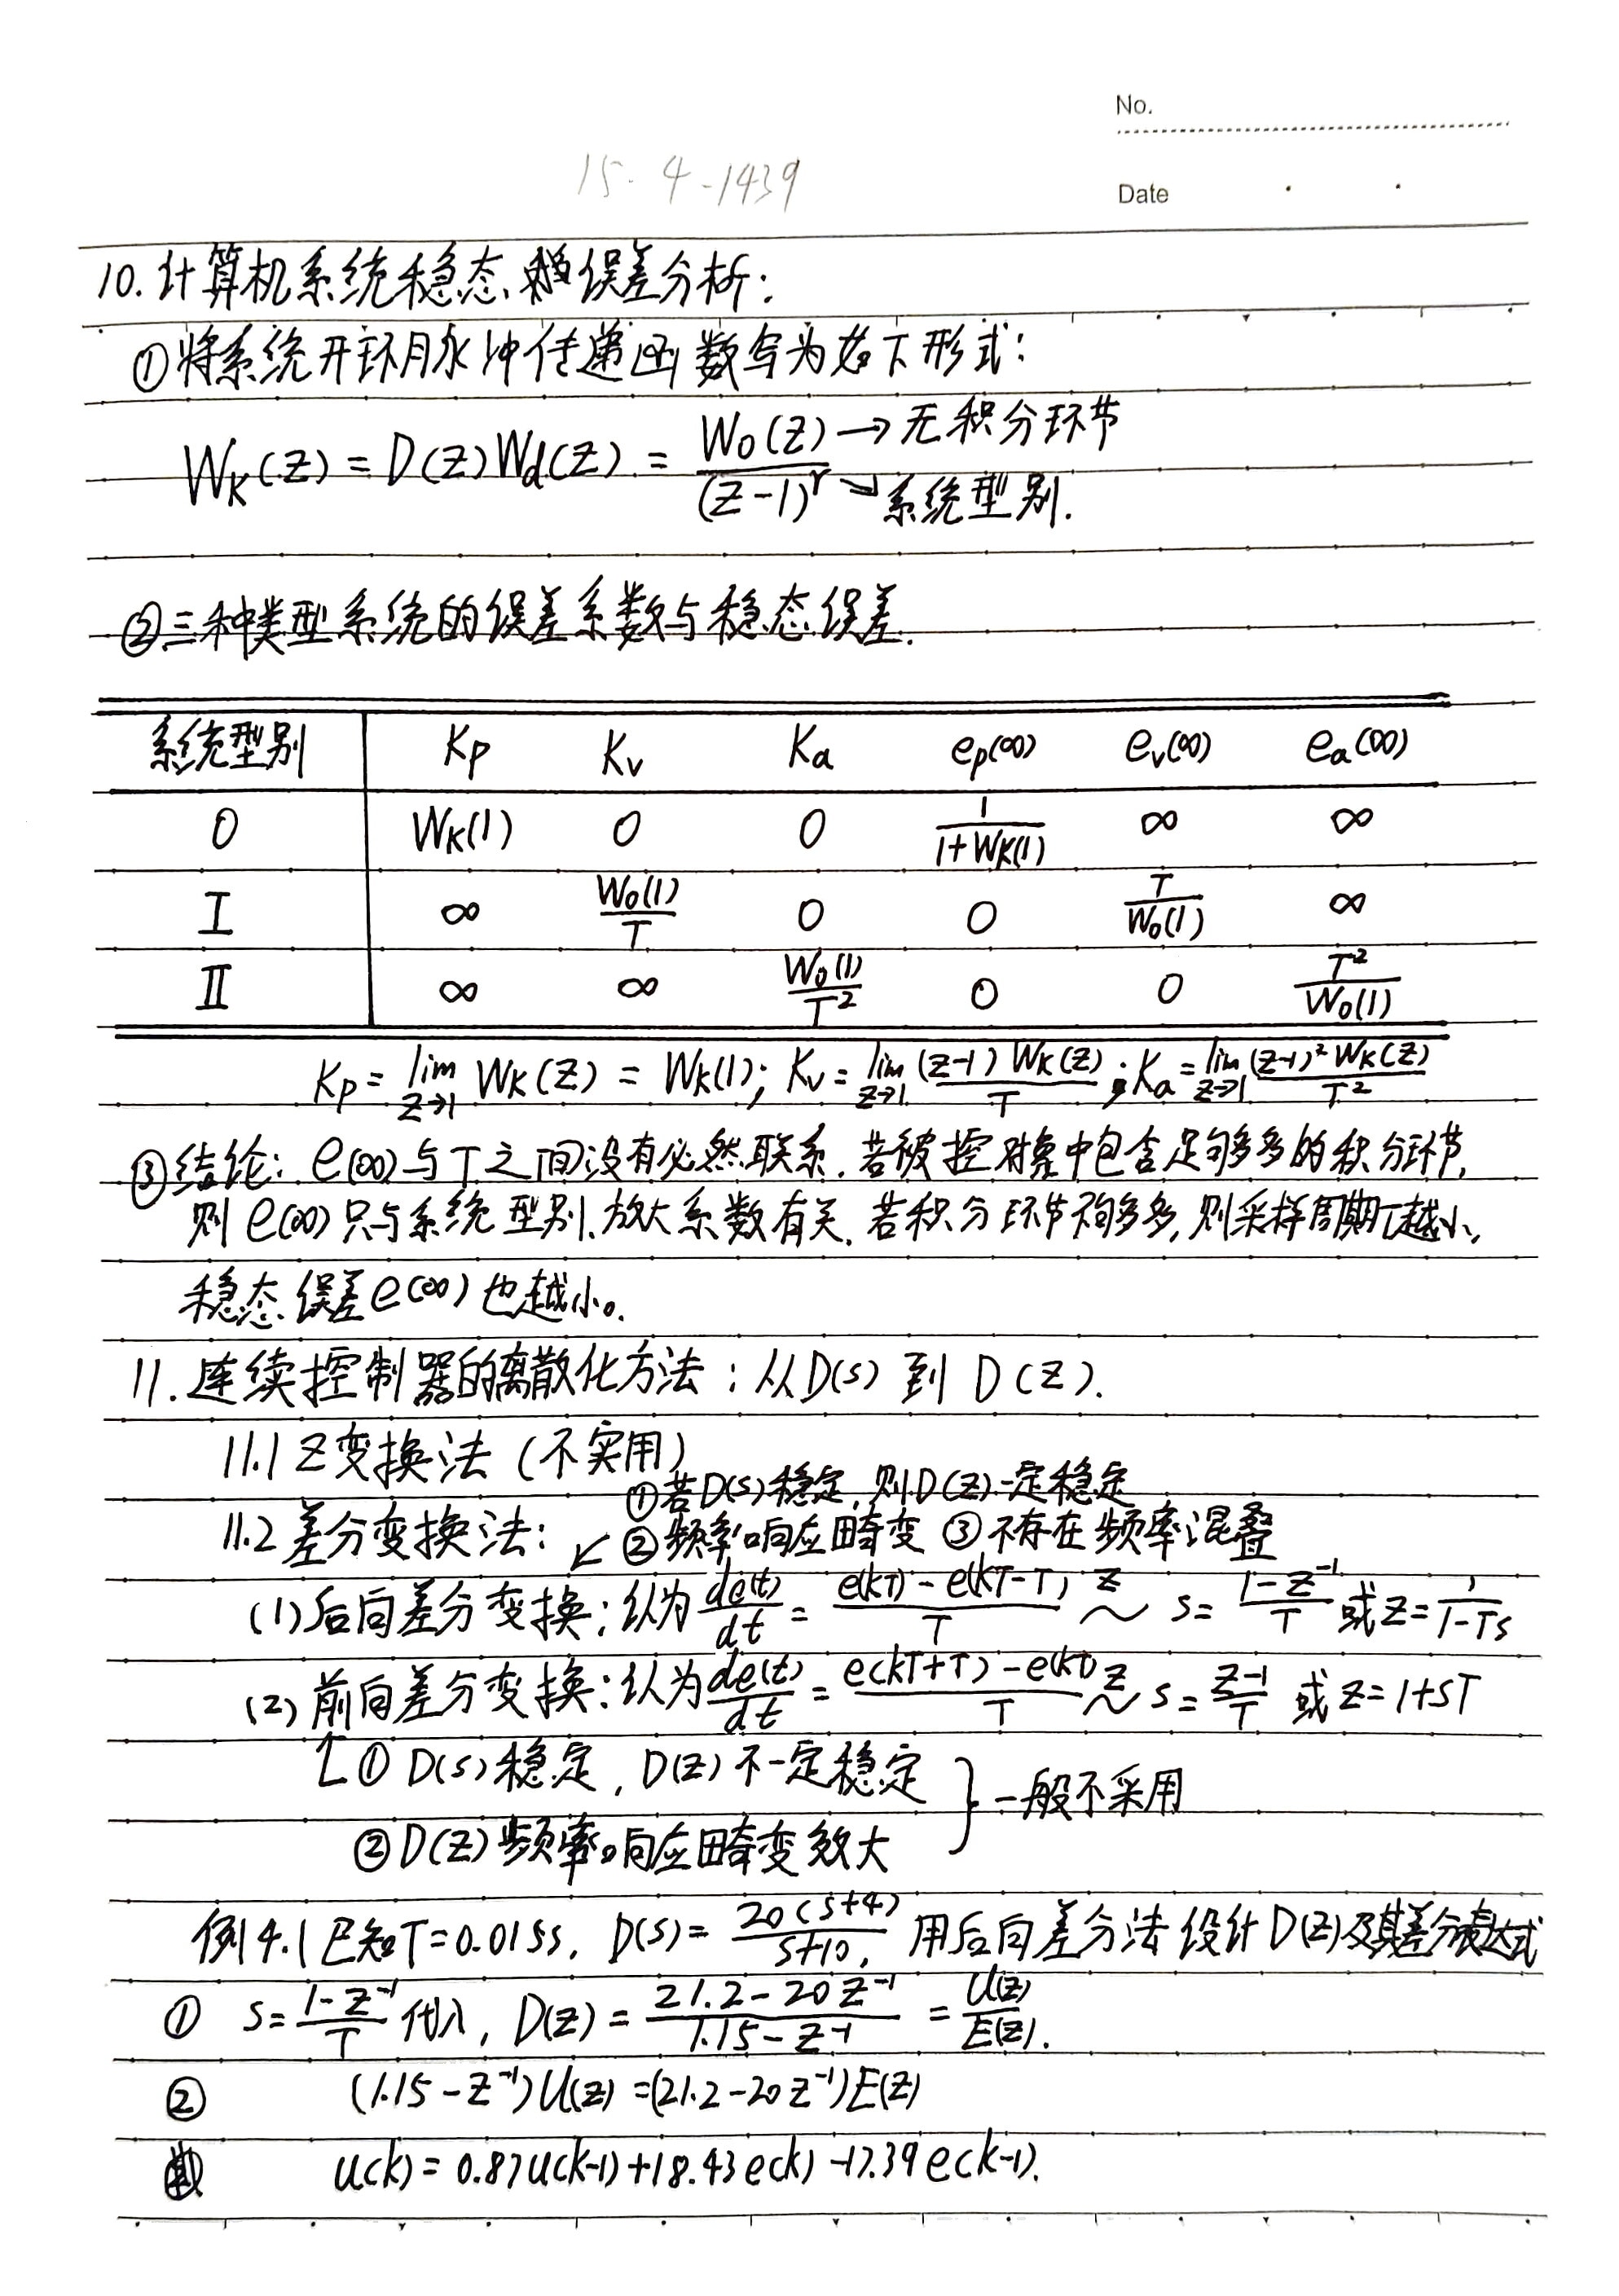 No.
15-4-1439
Date
10.计算机系统稳态误差分析:
①将系统开环脉冲传递函数写为如下形式:
W_K(Z)=D(Z)W_d(Z)=W_0(Z)/(Z-1)^r →无积分环节 →系统型别.
②三种类型系统的误差系数与稳态误差.
系统型别 Kp Kv Ka ep(∞) ev(∞) ea(∞)
0 W_K(1) 0 0 1/(1+W_K(1)) ∞ ∞
I ∞ W_0(1)/T 0 0 T/W_0(1) ∞
II ∞ ∞ W_0(1)/T² 0 0 T²/W_0(1)
Kp=lim_{Z→1} W_K(Z)=W_K(1); Kv=lim_{Z→1} (Z-1)W_K(Z)/T; Ka=lim_{Z→1} (Z-1)²W_K(Z)/T²
③结论: e(∞)与T之间没有必然联系.若被控对象中包含足够多的积分环节,
则e(∞)只与系统型别.放大系数有关.若积分环节不够多,则采样周期T越小,
稳态误差e(∞)也越小。
11.连续控制器的离散化方法:从D(s)到D(Z).
11.1 Z变换法(不实用)
①若D(s)稳定,则D(Z)一定稳定
11.2差分变换法: ↙ ②频率响应畸变 ③不存在频率混叠
(1)后向差分变换:认为de(t)/dt=(e(kT)-e(kT-T))/T Z~ s=(1-Z⁻¹)/T 或Z=1/(1-Ts)
(2)前向差分变换:认为de(t)/dt=(e(kT+T)-e(kT))/T Z~ s=(Z-1)/T 或Z=1+sT
↑①D(s)稳定,D(Z)不一定稳定 }一般不采用
②D(Z)频率响应畸变较大
例4.1已知T=0.015s, D(s)=20(s+4)/(s+10), 用后向差分法设计D(Z)及其差分表达式
① s=(1-Z⁻¹)/T 代入, D(Z)=(21.2-20Z⁻¹)/(1.15-Z⁻¹)=U(Z)/E(Z).
② (1.15-Z⁻¹)U(Z)=(21.2-20Z⁻¹)E(Z)
u(k)=0.87u(k-1)+18.43e(k)-17.39e(k-1).